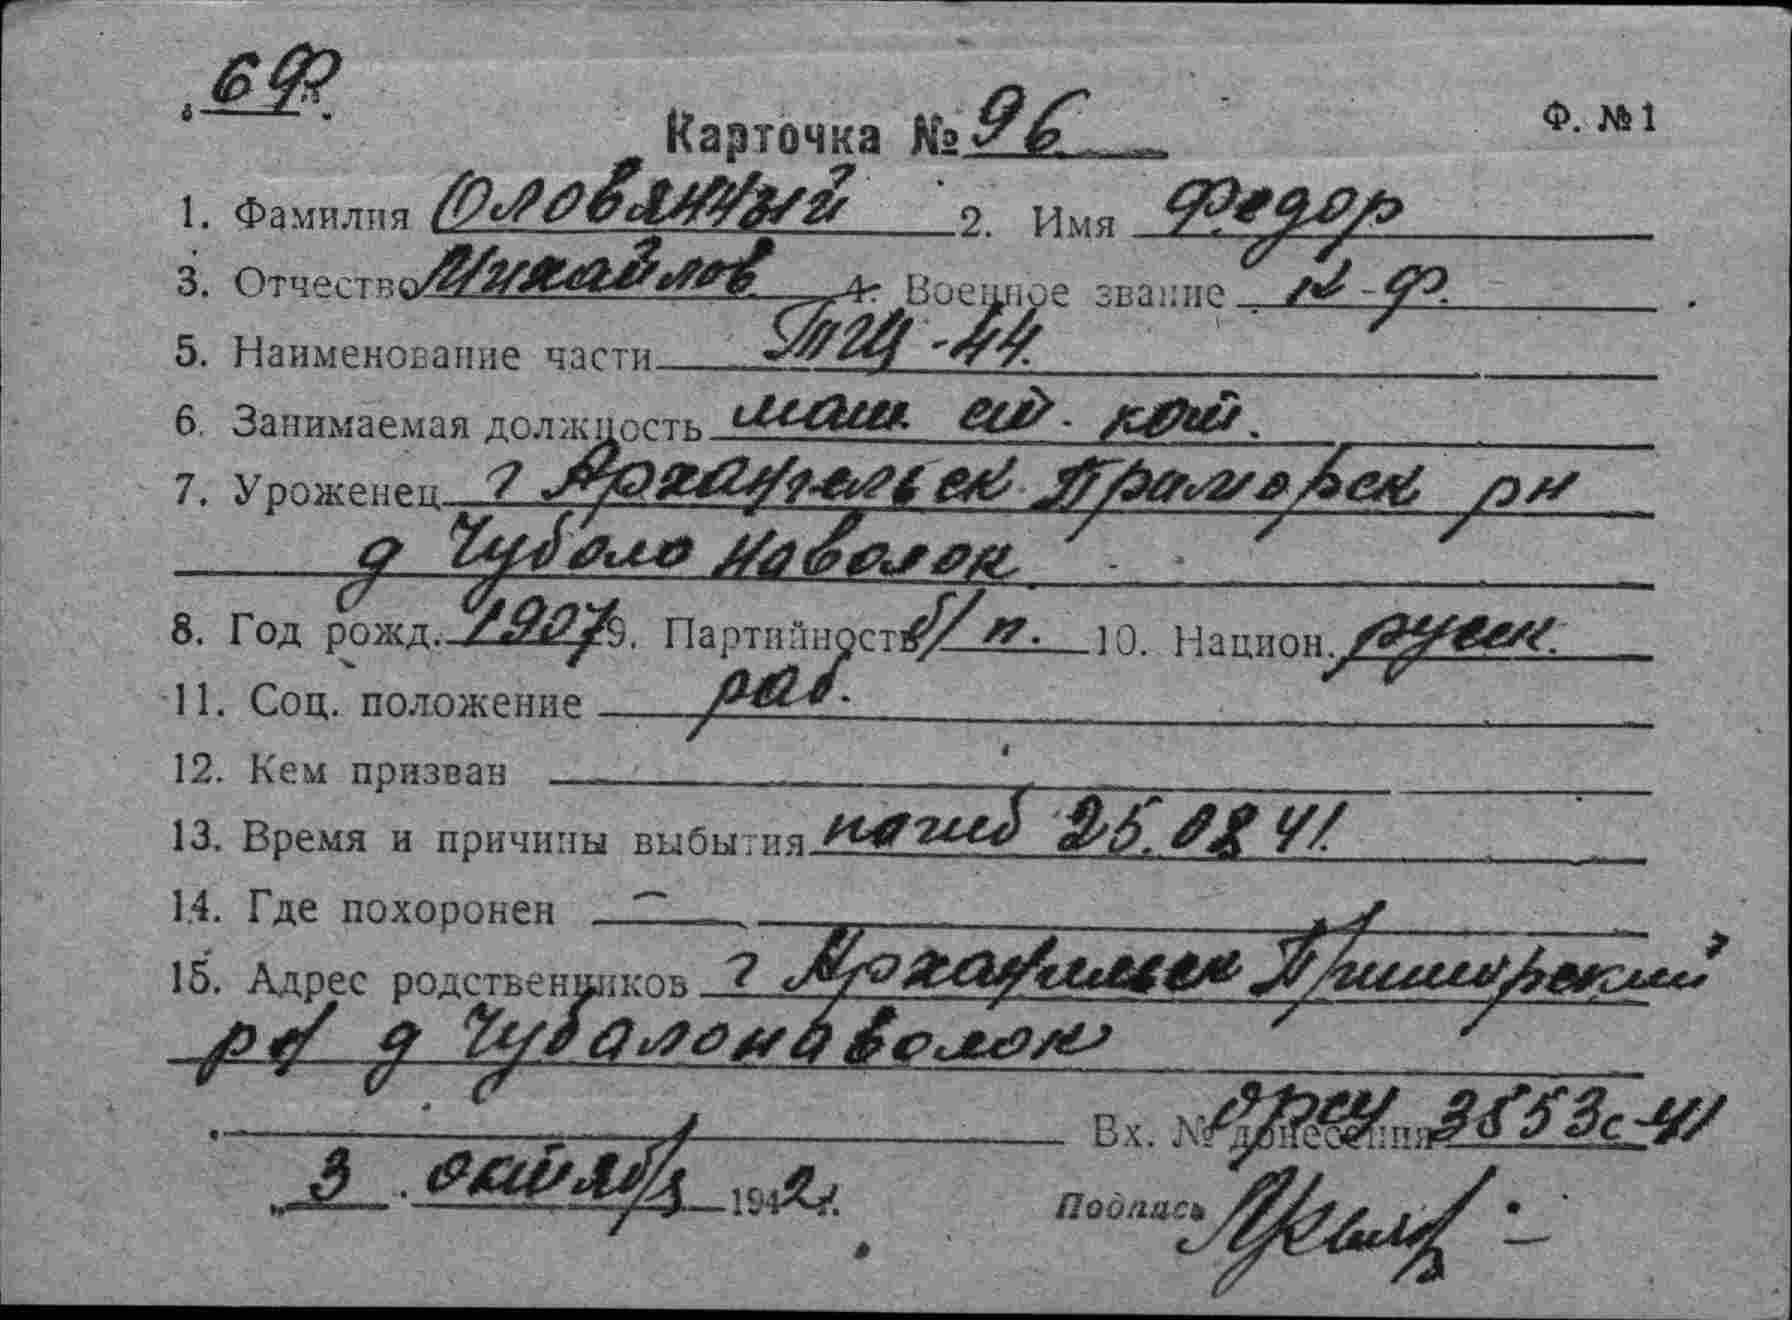 6 Ф.
Карточка № 96 Ф. № 1
1. Фамилия Оловянный 2. Имя Федор
3. Отчество Михайлов 4. Военное звание к-ф.
5. Наименование части ТЩ-44.
6. Занимаемая должность маш. кот.
7. Уроженец г Архангельск Праморск рн
д Чуболо Наволок
8. Год рожд. 1907 9. Партийность б/п. 10. Национ. русск.
11. Соц. положение раб.
12. Кем призван
13. Время и причины выбытия погиб 25.08 41.
14. Где похоронен —
15. Адрес родственников г Архангельск Приморский
рн д Чубалонаволок
Вх. № донесения 3553с-41
„ 3 . октября 1942 г.
Подпись